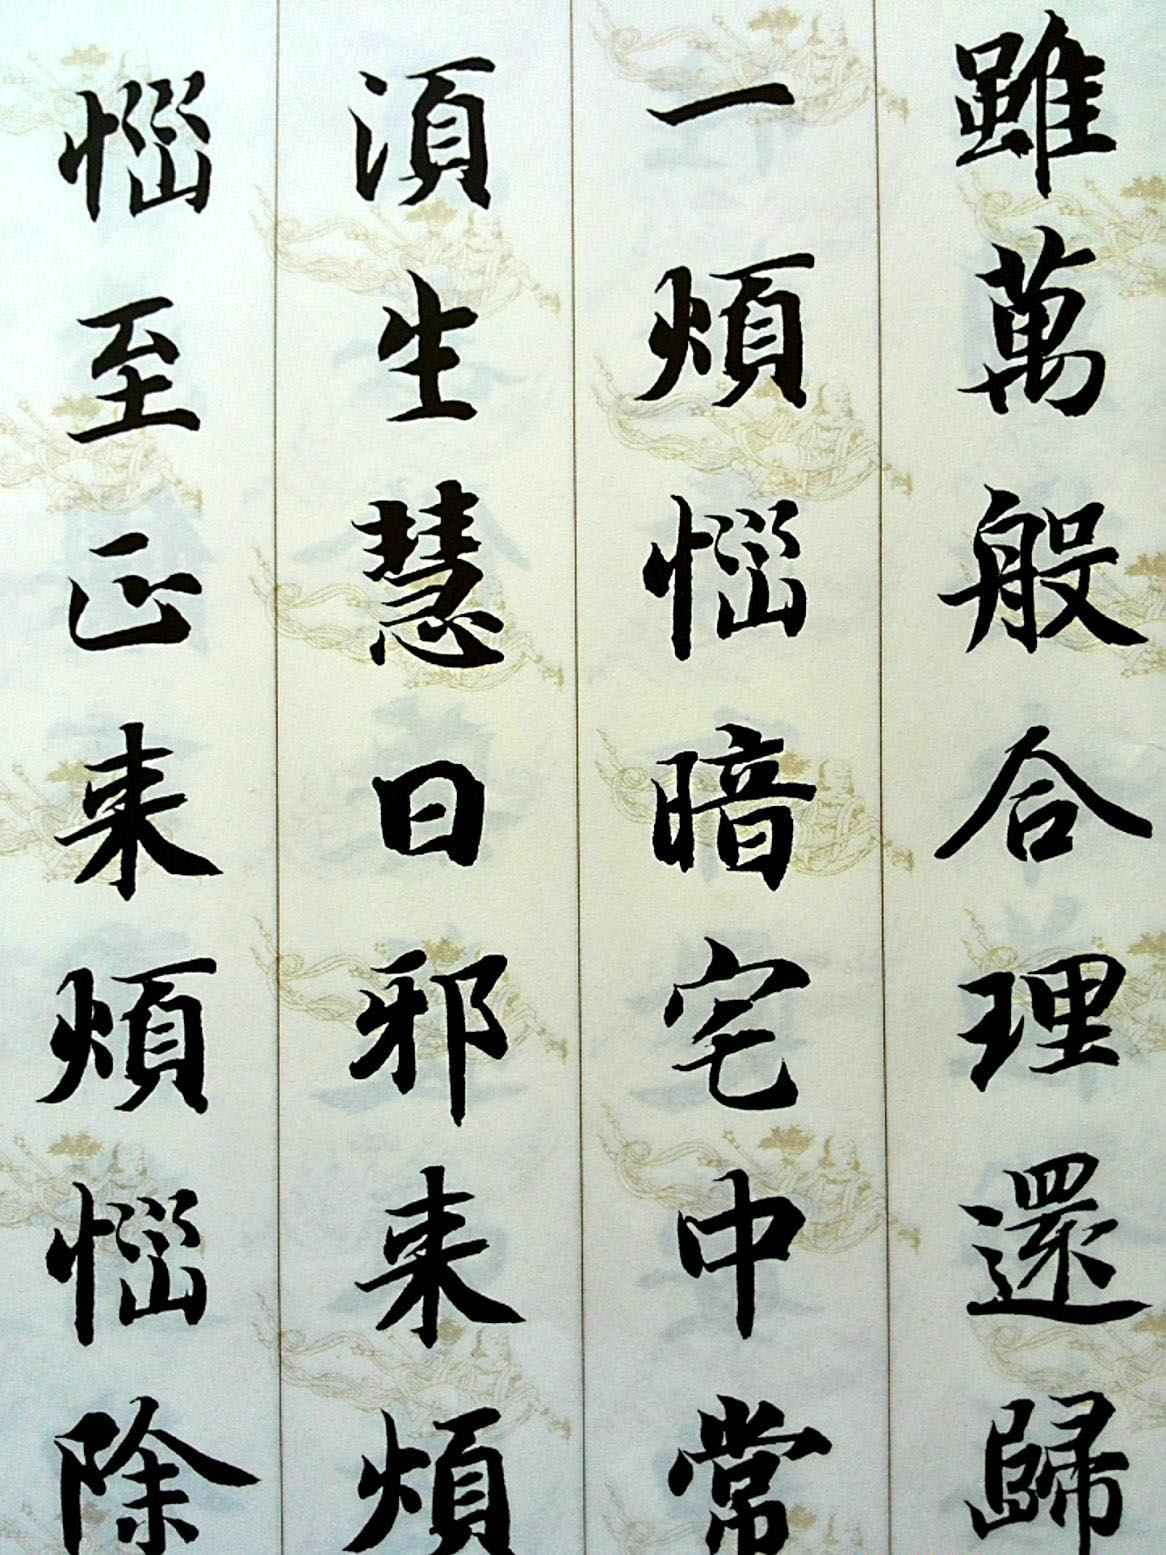 雖萬般合理還歸
一煩惱暗宅中常
須生慧日邪来煩
惱至正来煩惱除